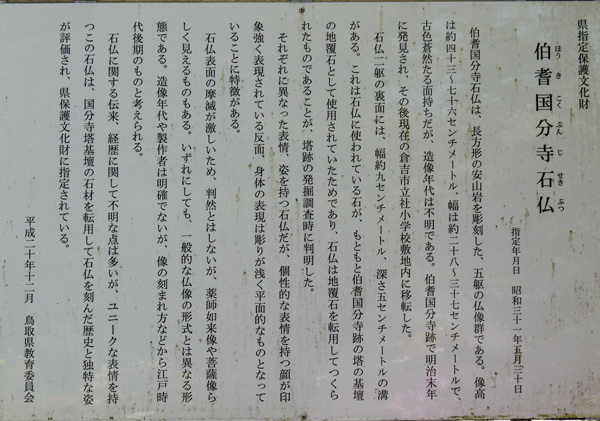 県指定保護文化財
伯耆国分寺石仏
ほうきこくぶんじせきぶつ
指定年月日　昭和三十一年五月三十日
伯耆国分寺石仏は、長方形の安山岩を彫刻した、五躯の仏像群である。像高
は約四十三～七十六センチメートル、幅は約二十八～三十七センチメートルで、
古色蒼然たる面持ちだが、造像年代は不明である。伯耆国分寺跡で明治末年
に発見され、その後現在の倉吉市立社小学校敷地内に移転した。
石仏二躯の裏面には、幅約九センチメートル、深さ五センチメートルの溝
がある。これは石仏に使われている石が、もともと伯耆国分寺跡の塔の基壇
の地覆石として使用されていたためであり、石仏は地覆石を転用してつくら
れたものであることが、塔跡の発掘調査時に判明した。
それぞれに異なった表情、姿を持つ石仏だが、個性的な表情を持つ顔が印
象強く表現されている反面、身体の表現は彫りが浅く平面的なものとなって
いることに特徴がある。
石仏表面の摩滅が激しいため、判然とはしないが、薬師如来像や菩薩像ら
しく見えるものもある。いずれにしても、一般的な仏像の形式とは異なる形
態である。造像年代や製作者は明確でないが、像の刻まれ方などから江戸時
代後期のものと考えられる。
石仏に関する伝来、経歴に関して不明な点は多いが、ユニークな表情を持
つこの石仏は、国分寺塔基壇の石材を転用して石仏を刻んだ歴史と独特な姿
が評価され、県保護文化財に指定されている。
平成二十年十二月　鳥取県教育委員会